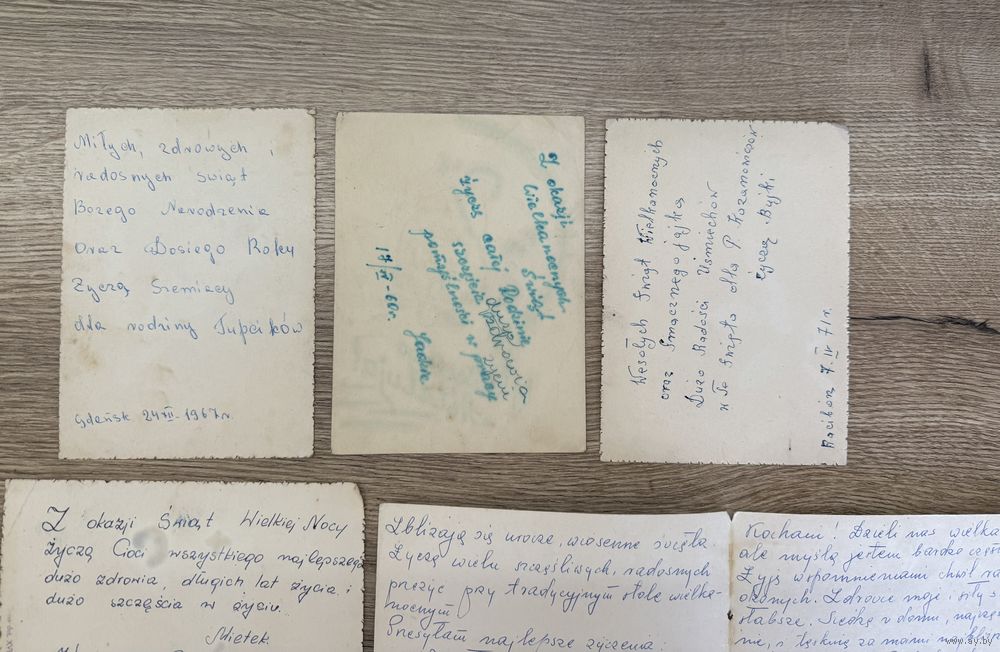 Miłych, zdrowych i
radosnych świąt
Bożego Narodzenia
Oraz Dosiego Roku
Życzą Siemiaccy
dla rodziny Tupcików
Gdeńsk 24 XII-1967r.
Z okazji
Wielkanocnych
Świąt
życzę całej Rodzinie
dużo zdrowia
szczęścia
pomyślności w życiu
17/IV-60r.
Wesołych Świąt Wielkanocnych
oraz Smacznego jajka
Dużo Radości Uśmiechów
w Te Święta dla P
życzą Bajki
Racibórz 7.IV 71r.
Z okazji Świąt Wielkiej Nocy
życzą Cioci wszystkiego najlepszego
dużo zdrowia, długich lat życia i
dużo szczęścia w życiu.
Mietek.
Zbliżają się urocze, wiosenne święta
Życzę wielu szczęśliwych, radosnych
przeżyć przy tradycyjnym stole wielka-
nocnym
Przesyłam najlepsze życzenia.
Kochani! Dzieli nas wielka
ale myślą jestem bardzo
Żyję wspomnieniami chwil
Zdrowie moje i siły
słabsze. Siedzę w domu,
nie, i tęsknię za wami
www.ay.by